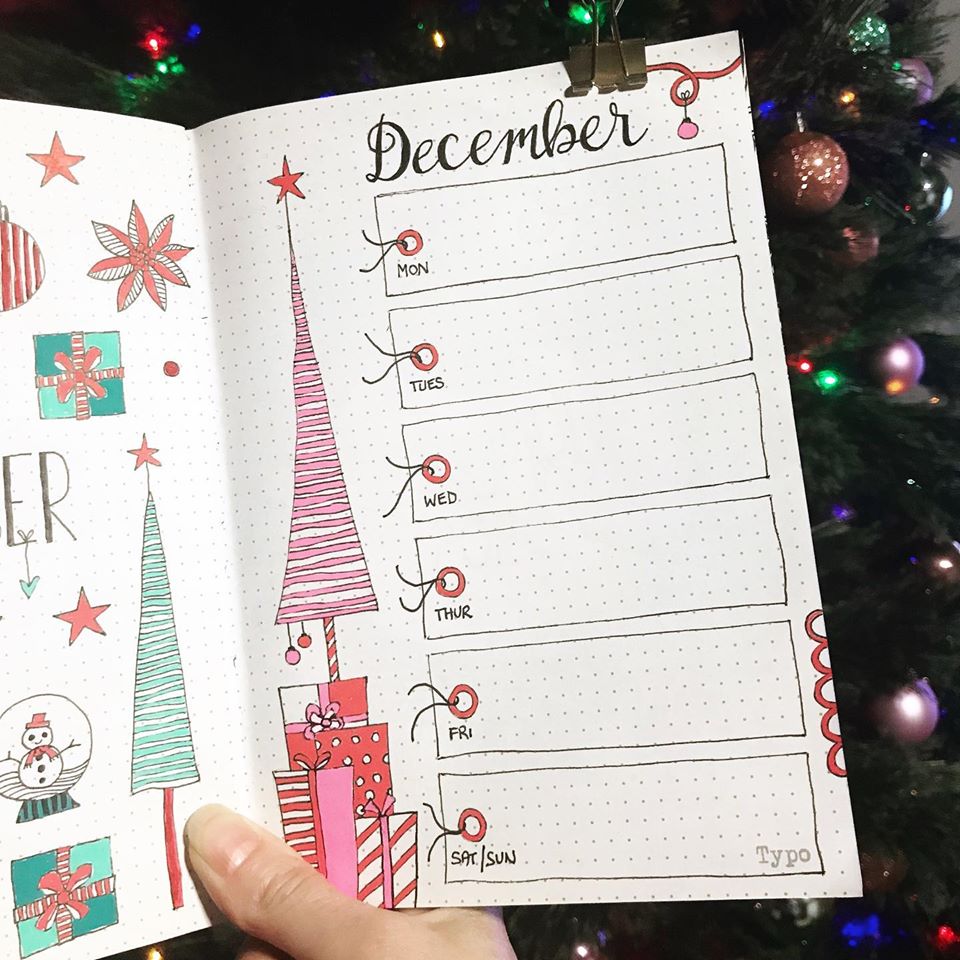 BER
December
MON
TUES
WED
THUR
FRI
SAT/SUN
Typo